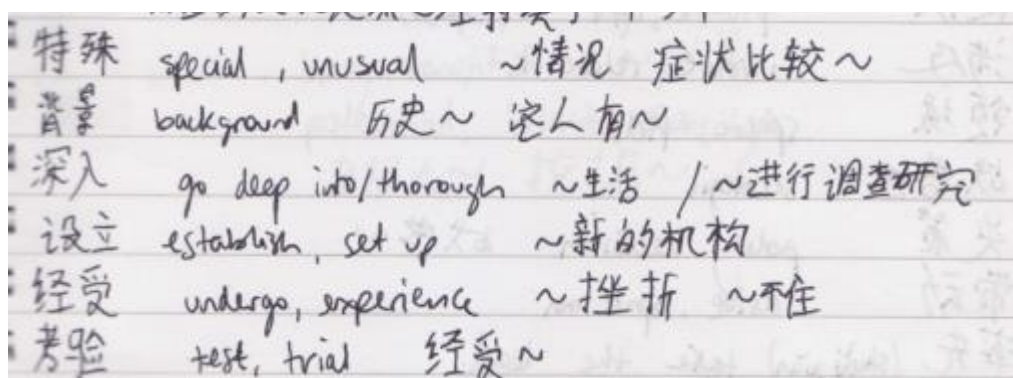 特殊 special, unusual ~情况 症状比较~
背景 background 历史~ 这人有~
深入 go deep into/thorough ~生活 / ~进行调查研究
设立 establish, set up ~新的机构
经受 undergo, experience ~挫折 ~不住
考验 test, trial 经受~